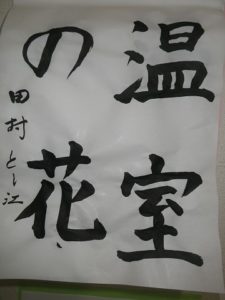 温室
の花
田村とし江